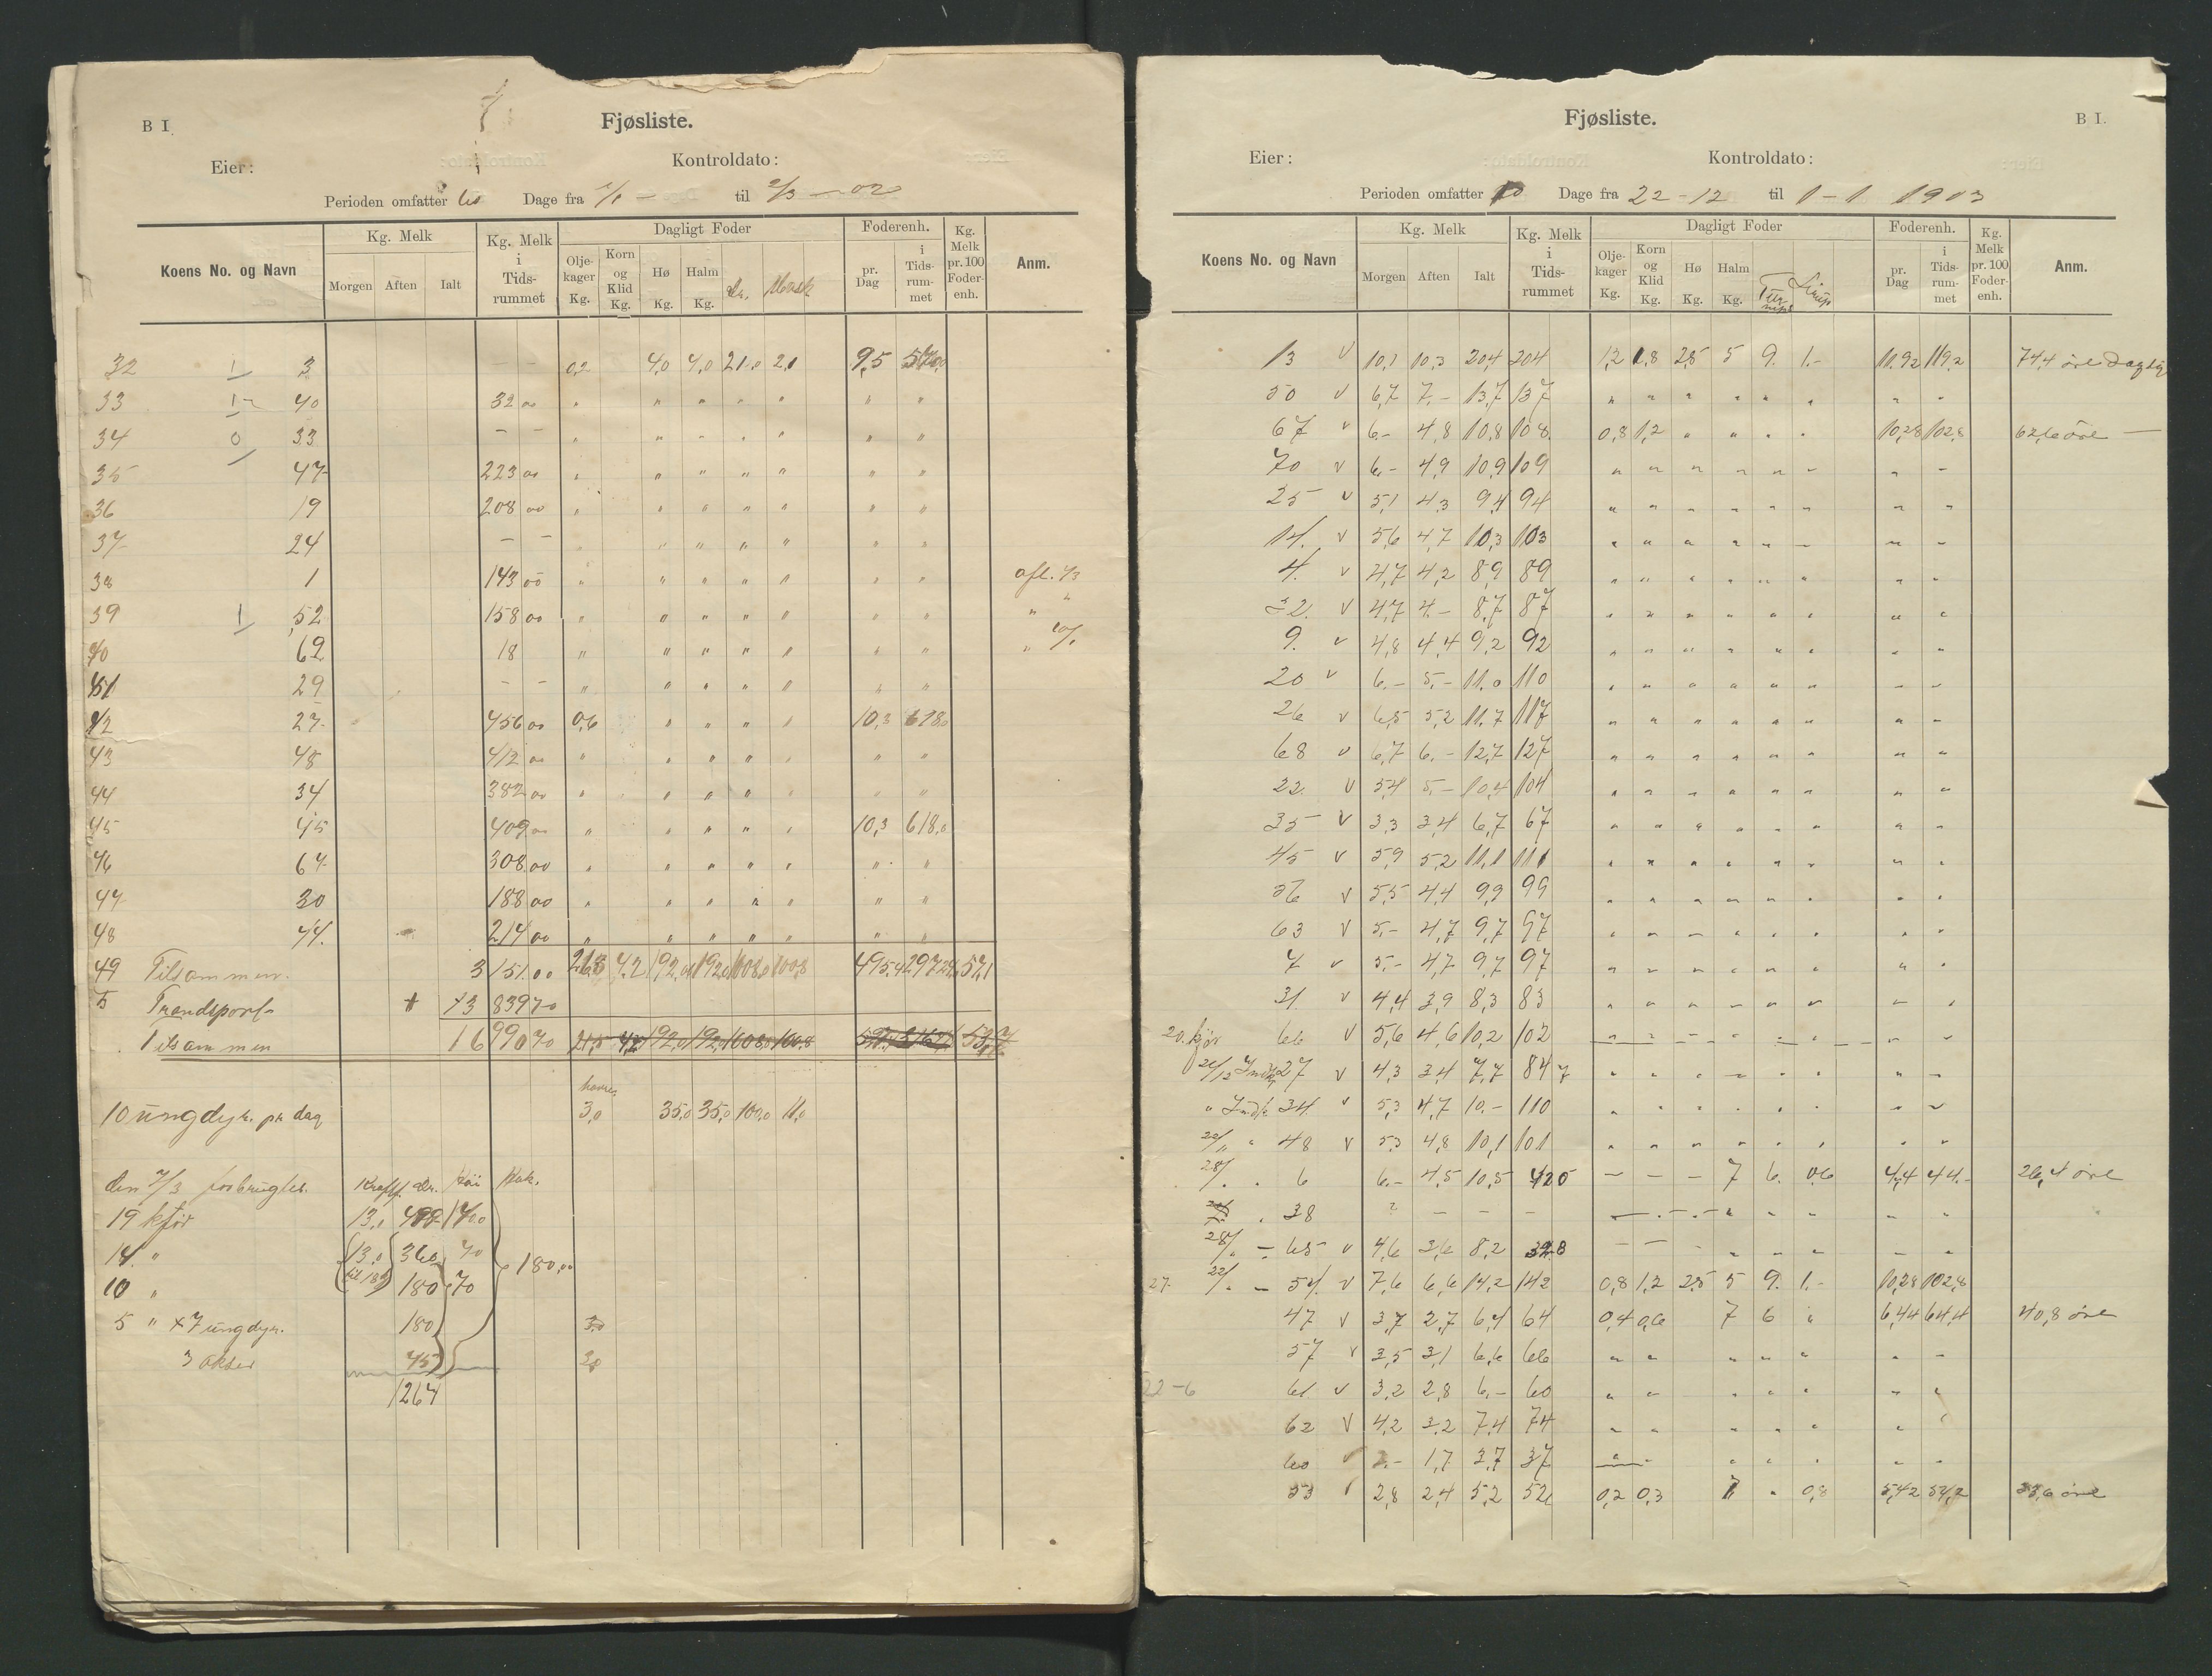 B I.
Fjøsliste.
Eier:
Kontroldato:
Perioden omfatter 60 Dage fra 1/1 — til 2/3 — 02
Koens No. og Navn
Kg. Melk
Morgen Aften Ialt
Kg. Melk i Tids-rummet
Dagligt Foder
Olje-kager Kg.
Korn og Klid Kg.
Hø Kg.
Halm Kg.
Mask
Foderenh.
pr. Dag
i Tids-rum-met
Kg. Melk pr. 100 Foder-enh.
Anm.
32 1/ 3 - - 0,2 4,0 4,0 21,0 2,1 9,5 570,0
33 1/- 40 32 00 " " " " " " "
34 0/ 33 - - " " " " " " "
35 47 223 00 " " " " " " "
36 19 208 00 " " " " " " "
37 24 - - " " " " " "
38 1 143 00 " " " " " " " afl.
39 1/ 52 158 00 " " " " " " " " "
40 62 18 " " " " " " " "
41 29 - - " " " " " " "
42 27 456 00 0,6 " " " " 10,3 618,0
43 48 412 00 " " " " " " "
44 34 382 00 " " " " " " "
45 45 409 00 " " " " " 10,3 618,0
46 64 308 00 " " " " " " "
47 30 188 00 " " " " " " "
48 44. 214 00 " " " " " " "
49 Tilsammen. 3 151.00 26,8 4.2 192,0 192,0 1008,0 100,8 495,4 57,1
Trandsport 13 839 70
Tilsammen 16 990 70 21,5 4,2 192,0 192,0 1008,0 100,8
10 ungdyr. pr dag 3,0 35,0 35,0 100,0 11,0
den 7/3 forbrugtes. Kraftf.
19 kjør 13,0
14. " 13,0 360 70 180,00
10 " 180 70
5 " + 7 ungdyr. 180 3,0
3 okser 45
1264
Fjøsliste.
B I.
Eier:
Kontroldato:
Perioden omfatter 10 Dage fra 22-12 til 1-1 1903
Koens No. og Navn
Kg. Melk
Morgen Aften Ialt
Kg. Melk i Tids-rummet
Dagligt Foder
Olje-kager Kg.
Korn og Klid Kg.
Hø Kg.
Halm Kg.
Turnips
Sirup
Foderenh.
pr. Dag
i Tids-rum-met
Kg. Melk pr. 100 Foder-enh.
Anm.
13 v 10,1 10,3 20,4 204 1,2 1,8 2,5 5 9. 1.- 11.92 119,2 74,4 øre Daglig
50 v 6,7 7,- 13,7 137 " " " " " " " "
67 v 6,- 4,8 10,8 108. 0,8 1,2 " " " " 10,28 102,8 62,6 øre —
70 v 6,- 4,9 10,9 109 " " " " " " " "
25 v 5,1 4,3 9,4 94 " " " " " " " "
14. v 5,6 4,7 10,3 103 " " " " " " " "
4. v 4,7 4,2 8,9 89 " " " " " " " "
32. v 4,7 4,- 8,7 87 " " " " " " " "
9. v 4,8 4,4 9,2 92 " " " " " " " "
20 v 6,- 5,- 11.0 110 " " " " " " " "
26 v 6,5 5,2 11.7 117 " " " " " " " "
68 v 6,7 6,- 12,7 127 " " " " " " " "
22. v 5,4 5,- 10,4 104 " " " " " " " "
35 v 3,3 3,4 6,7 67 " " " " " " " "
45 v 5,9 5,2 11,1 111 " " " " " " " "
36 v 5,5 4,4 9,9 99 " " " " " " " "
63 v 5,- 4,7 9,7 97 " " " " " " " "
7 v 5,- 4,7 9,7 97 " " " " " " " "
31. v 4,4 3,9 8,3 83 " " " " " " " "
20. kjør 66 v 5,6 4,6 10,2 102 " " " " " " " "
27 v 4,3 3,4 7,7 84 7 " " " " " " " "
" Indk 34 v 5,3 4,7 10.- 110 " " " " " " " "
22/" " 48 v 5,3 4,8 10,1 101 " " " " " " " "
28/" . 6 6.- 4,5 10,5 420 - - - 7 6. 0,6 4,4 44.- 26,4 øre
" 38 ? - - - " " " " "
28/" - 65 v 4,6 3,6 8,2 328 - - - " " " " "
27. 22/" - 54. v 7,6 6,6 14,2 142 0,8 1,2 2,5 5 9. 1.- 10,28 102,8
47 v 3,7 2,7 6,4 64 0,4 0,6 7 6 " 6,44 64,4 40,8 øre
57 v 3,5 3,1 6,6 66 " " " " " " "
22-6 61 v 3,2 2,8 6,- 60 " " " " " " "
62 v 4,2 3,2 7,4 74 " " " " " " "
60 v 2.- 1,7 3,7 37 " " " " " " "
53 v 2,8 2,4 5,2 52 0,2 0,3 7 " 0,8 5,42 54,2 33,6 øre